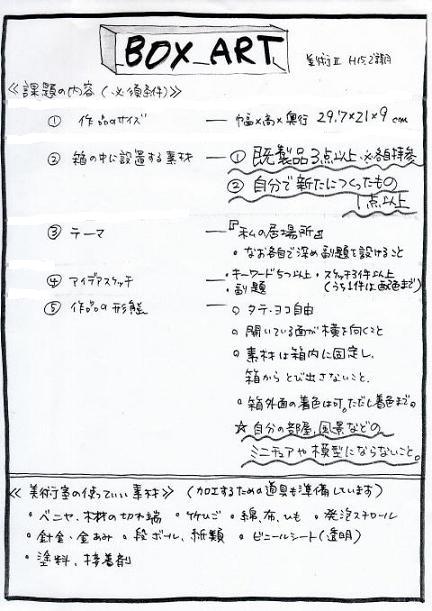 BOX ART
美術Ⅱ H15.2学期
≪課題の内容(必須条件)≫
① 作品のサイズ — 巾×高×奥行 29.7×21×9cm
② 箱の中に設置する素材 — ① 既製品3点以上・必各自持参
② 自分で新たにつくったもの
1点以上
③ テーマ — 『私の居場所』
・なお各自で深め副題を設けること
④ アイデアスケッチ — ・キーワード5つ以上・スケッチ3件以上
・副題 (うち1件は配色まで)
⑤ 作品の形態 — ○ タテ・ヨコ自由
○ 開いている面が横を向くこと
○ 素材は箱内に固定し、
箱からとび出さないこと。
○ 箱外面の着色は可。ただし着色まで。
☆ 自分の部屋、風景などの
ミニチュアや模型にならないこと。
≪美術室の使っていい素材≫ (加工するための道具も準備しています)
・ベニヤ、木材の切れ端 ・竹ひご ・綿、布、ひも ・発泡スチロール
・針金・金あみ ・段ボール、紙類 ・ビニールシート(透明)
・塗料、接着剤